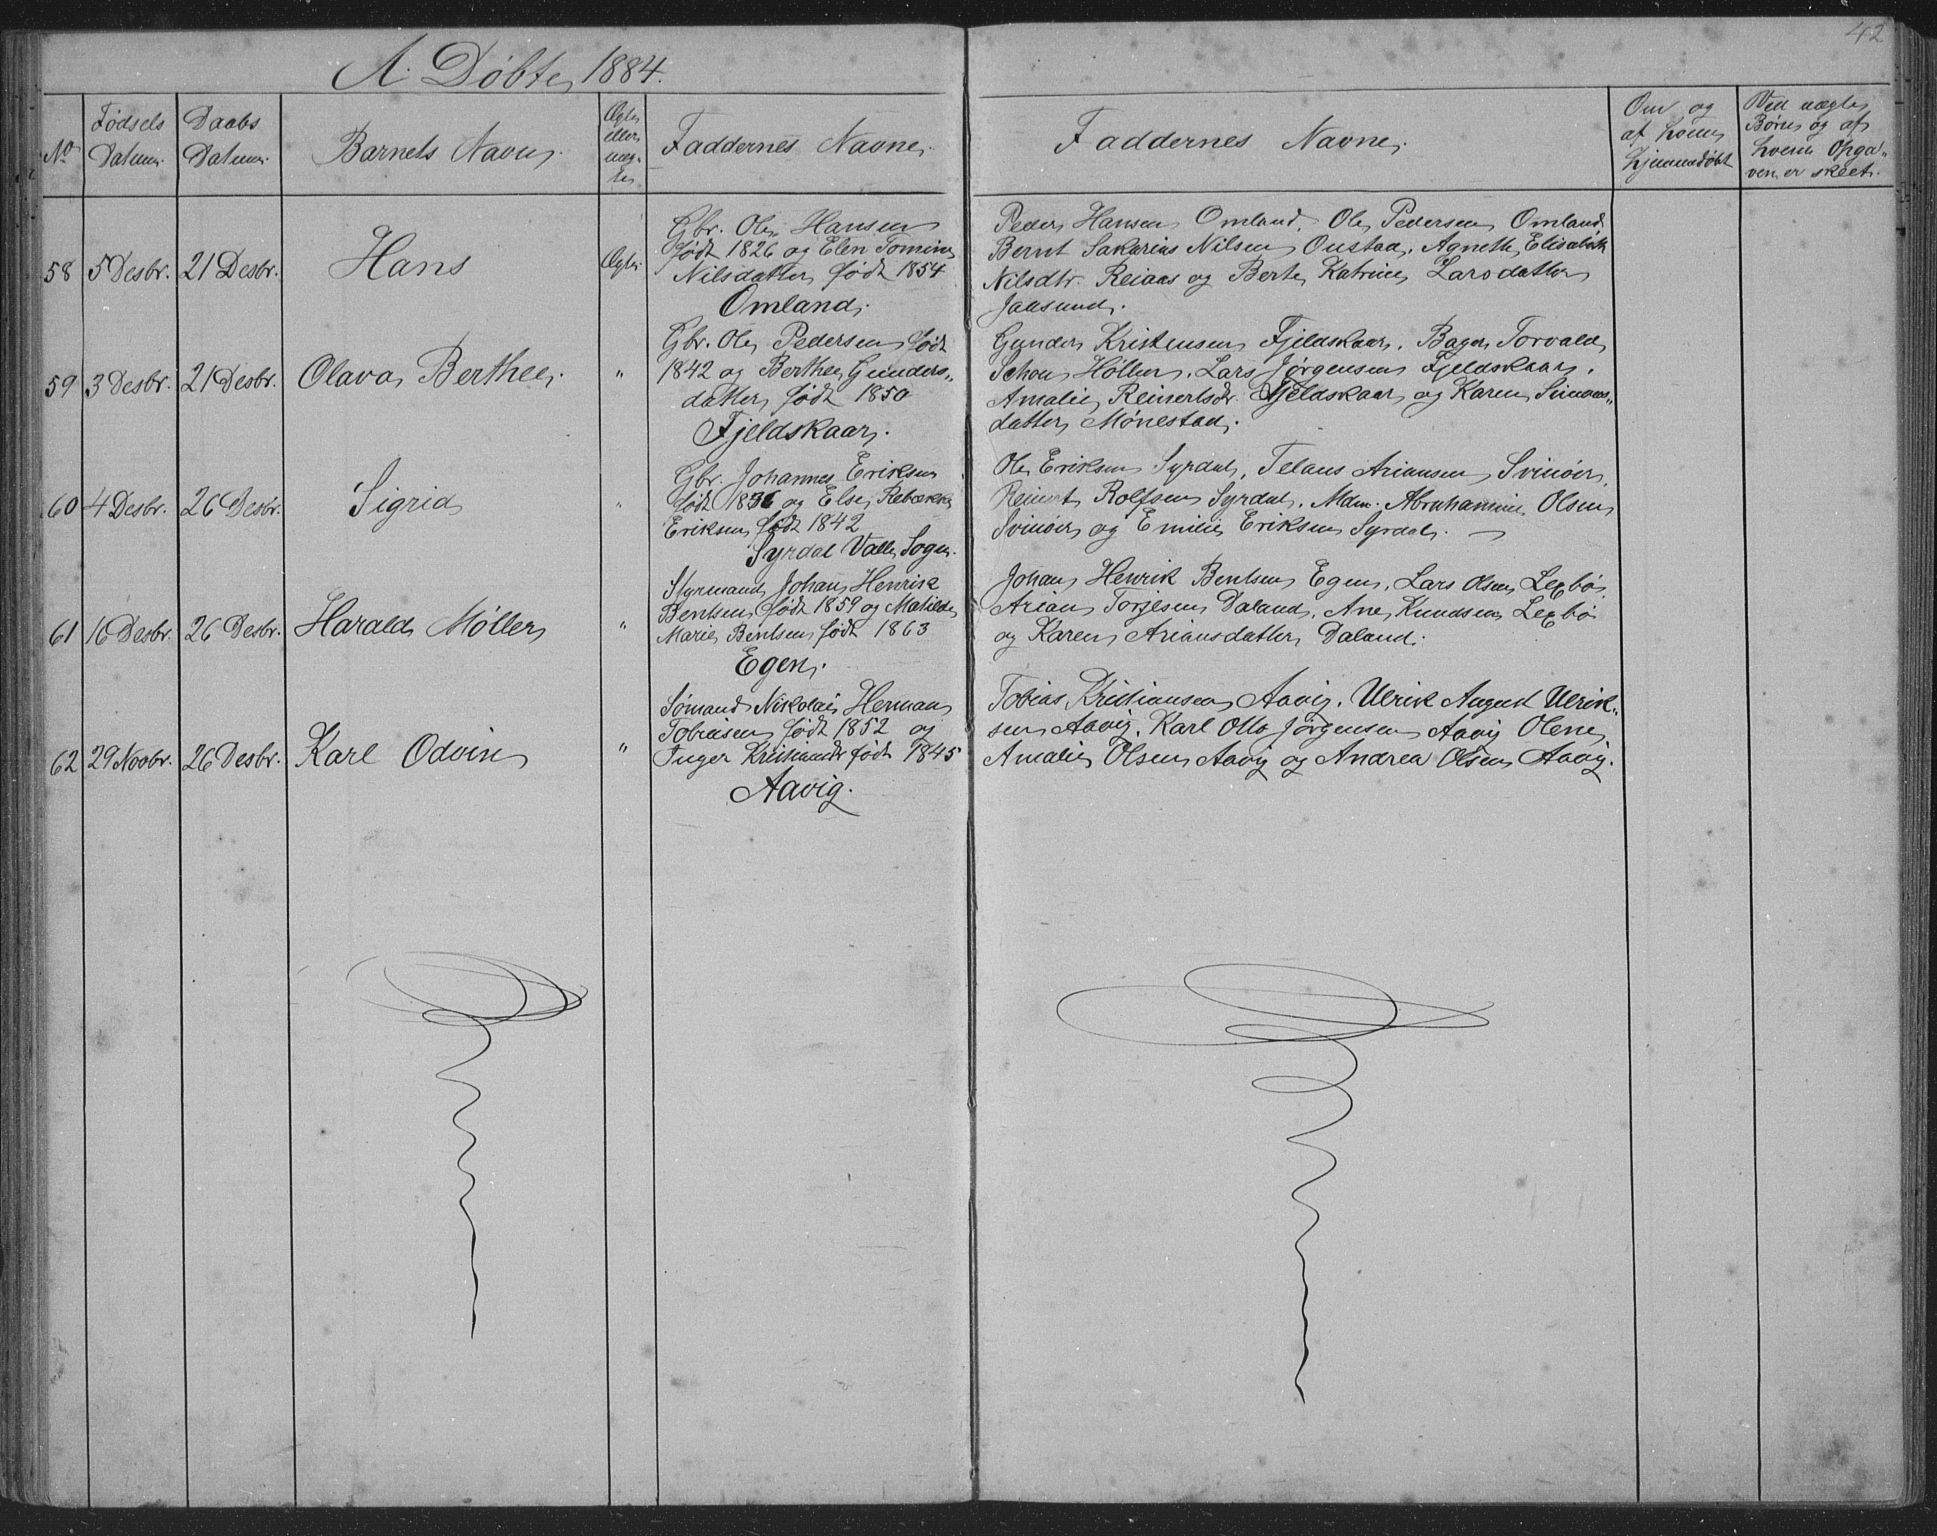 42
A. Døbte 1884.
No
Fødsels Datum.
Daabs Datum.
Barnets Navn.
Ægte eller uæg- te
Faddernes Navne.
Faddernes Navne.
Om og af hvem hjemmedøbt
Ved uægte Børn og af hvem Opga- ven er skeet.
58 5 Desbr. 21 Desbr. Hans Ægte.
Gbr. Ole Hansen
født 1826 og Elen Tomine
Nilsdatter født 1854
Omland.
Peder Hansen Omland, Ole Pedersen Omland
Bernt Sakarias Nilsen Oustad, Agnethe Elisabeth
Nilsdtr. Reiaas og Berte Katrine Larsdatter
Jaasund.
59 3 Desbr. 21 Desbr. Olava Berthee. "
Gbr. Ole Pedersen født
1842 og Berthee Gunders-
datter født 1850
Fjeldskaar.
Gunder Kristensen Fjeldskaar. Bager Torvald
Schou Høller, Lars Jørgensen Fjeldskaar,
Amalie Reinertsdr. Fjeldskaar og Karen Simons-
datter Mønestad.
60 4 Desbr. 26 Desbr. Sigrid "
Gbr. Johannes Eriksen
født 1836 og Else Rebække
Eriksen født 1842
Syrdal Valle Sogn.
Ole Eriksen Syrdal, Telaus Ariansen Svinøer,
Reinert Rolfsen Syrdal, Mdm. Abrahamine Olsen
Svinøer og Emilie Eriksen Syrdal.
61 16 Desbr. 26 Desbr. Harald Møller "
Styrmand Johan Henrik
Bentsen født 1859 og Matilde
Marie Bentsen født 1863
Egen.
Johan Henrik Bentsen Egen, Lars Olsen Lexbø
Arian Torjesen Daland, Ane Knudsen Lexbø
og Karen Ariansdatter Daland.
62 29 Novbr. 26 Desbr. Karl Odvin "
Sømand Nikolai Herman
Tobiasen født 1852 og
Inger Kristiansdr født 1845
Aavig.
Tobias Kristiansen Aavig. Ulrik August Ulrik-
sen Aavig, Karl Otto Jørgensen Aavig Olene
Amalie Olsen Aavig og Andrea Olsen Aavig.